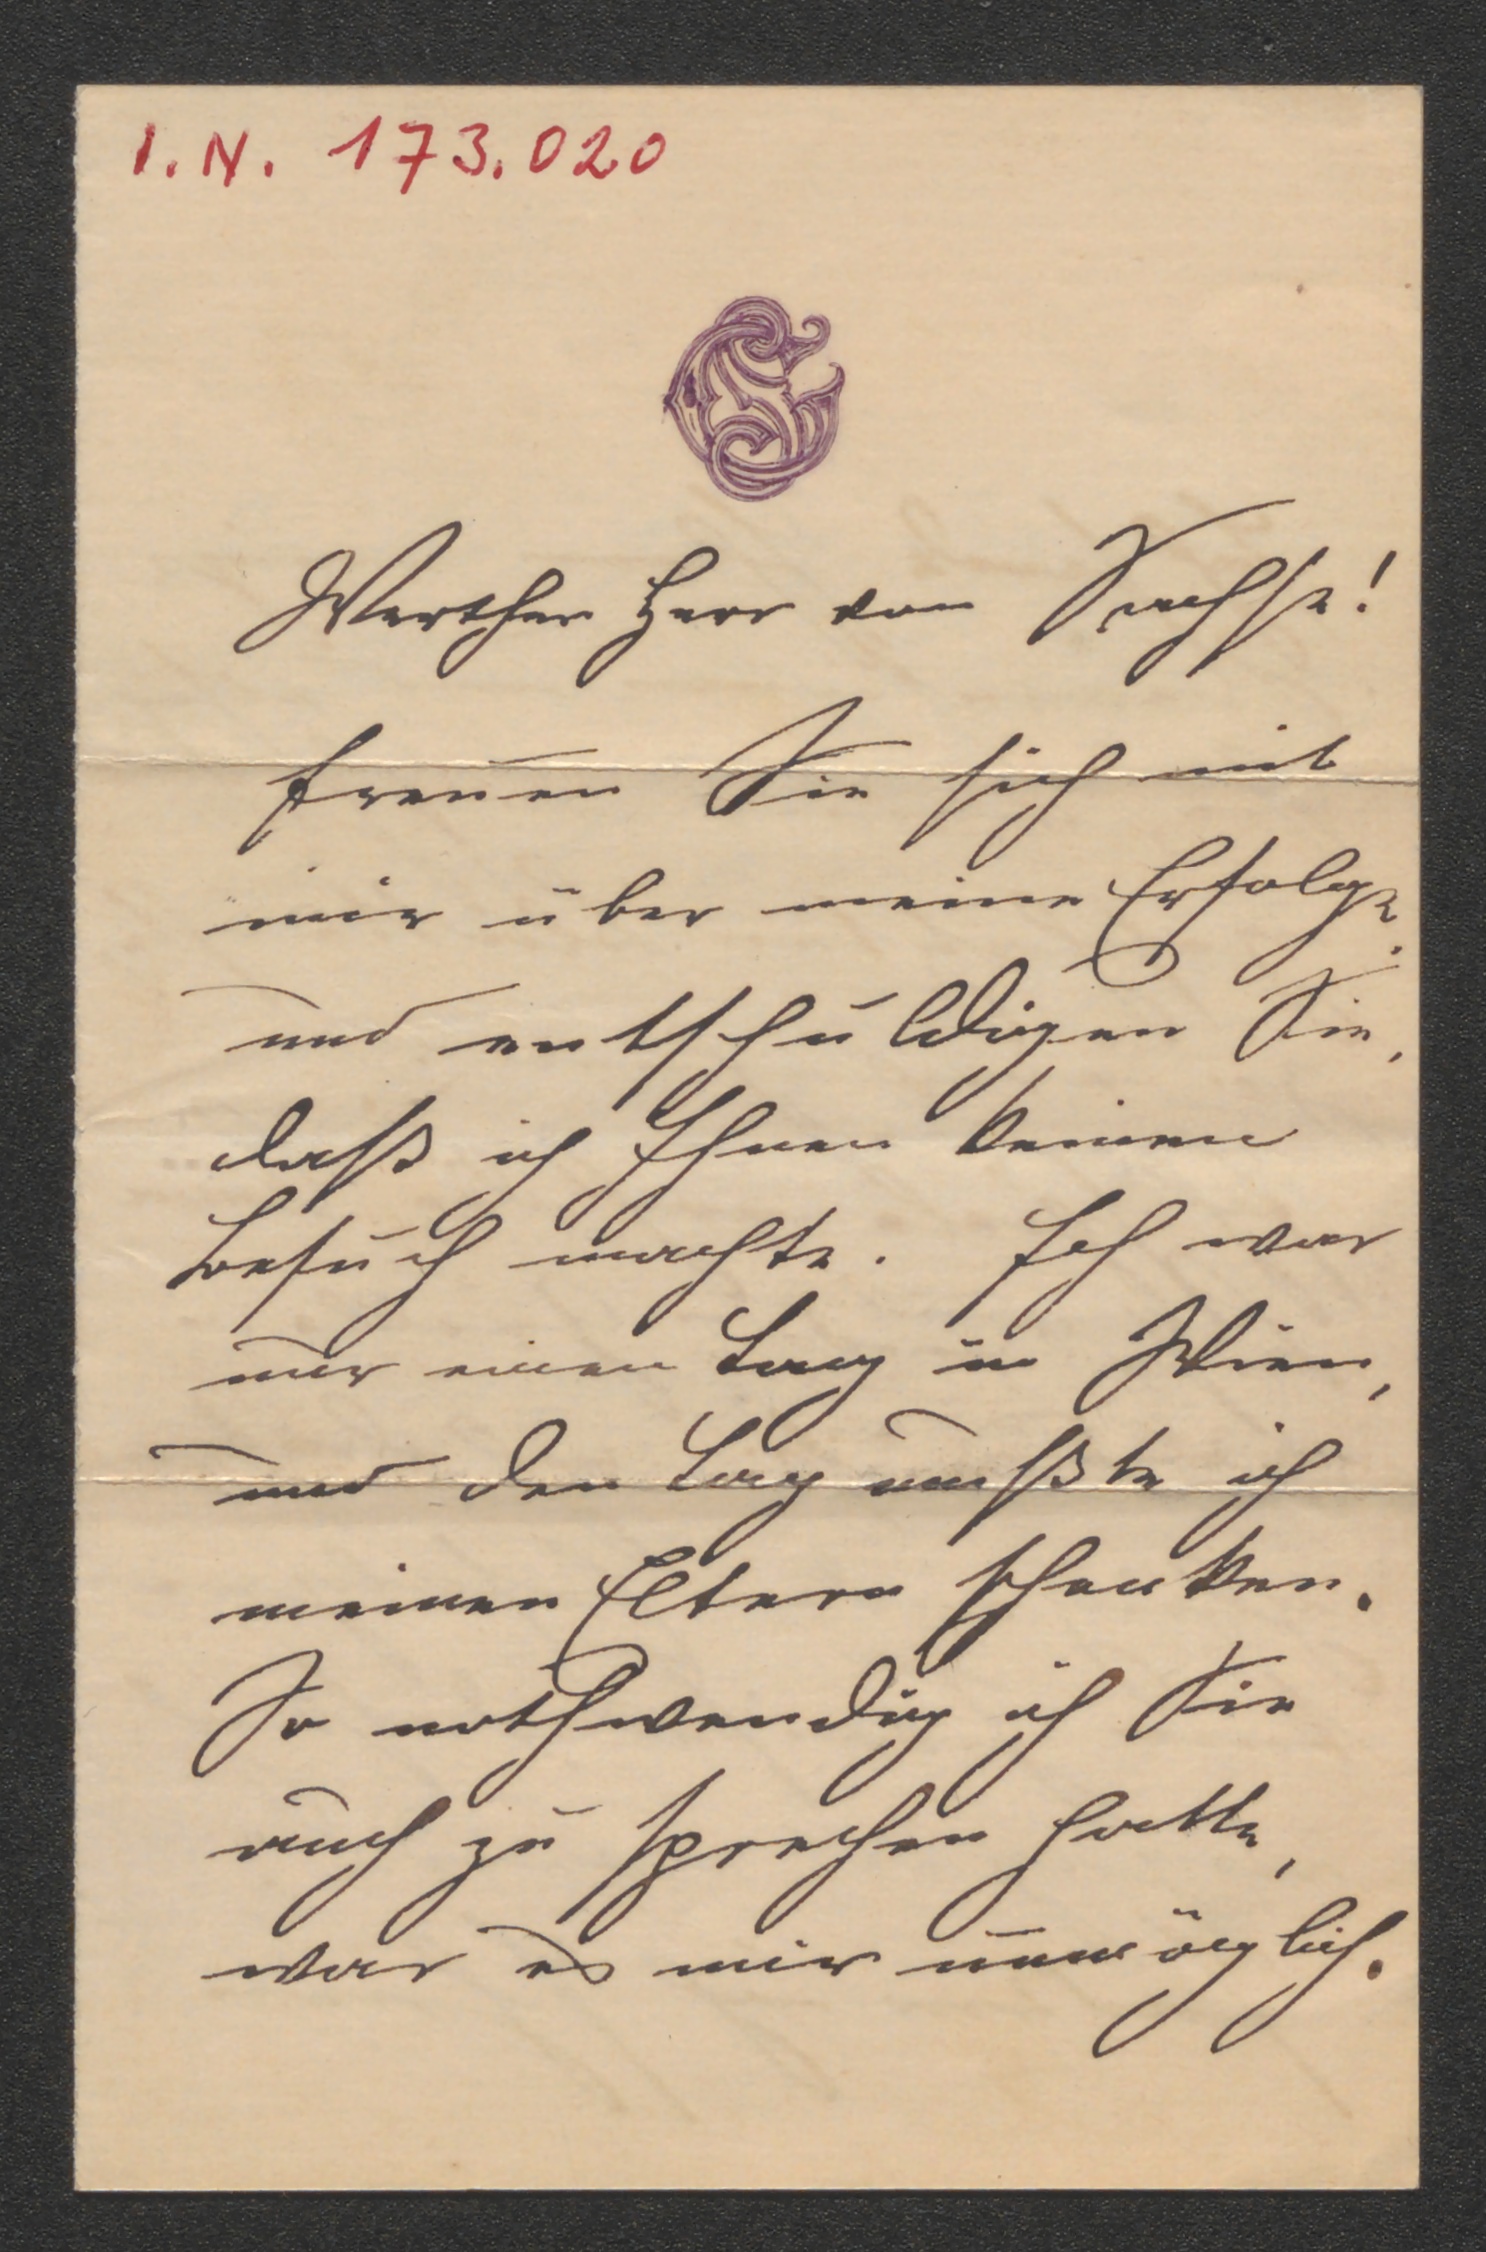 I. N. 173.020
Werther Herr von Sachse!
Freuen Sie sich mit
mir über meine Erfolge.
und entschuldigen Sie,
daß ich Ihnen keinen
Besuch machte. Ich war
nur einen Tag in Wien,
und den Tag mußte ich
meinen Eltern schenken.
So nothwendig ich Sie
auch zu sprechen hatte,
war es mir unmöglich.